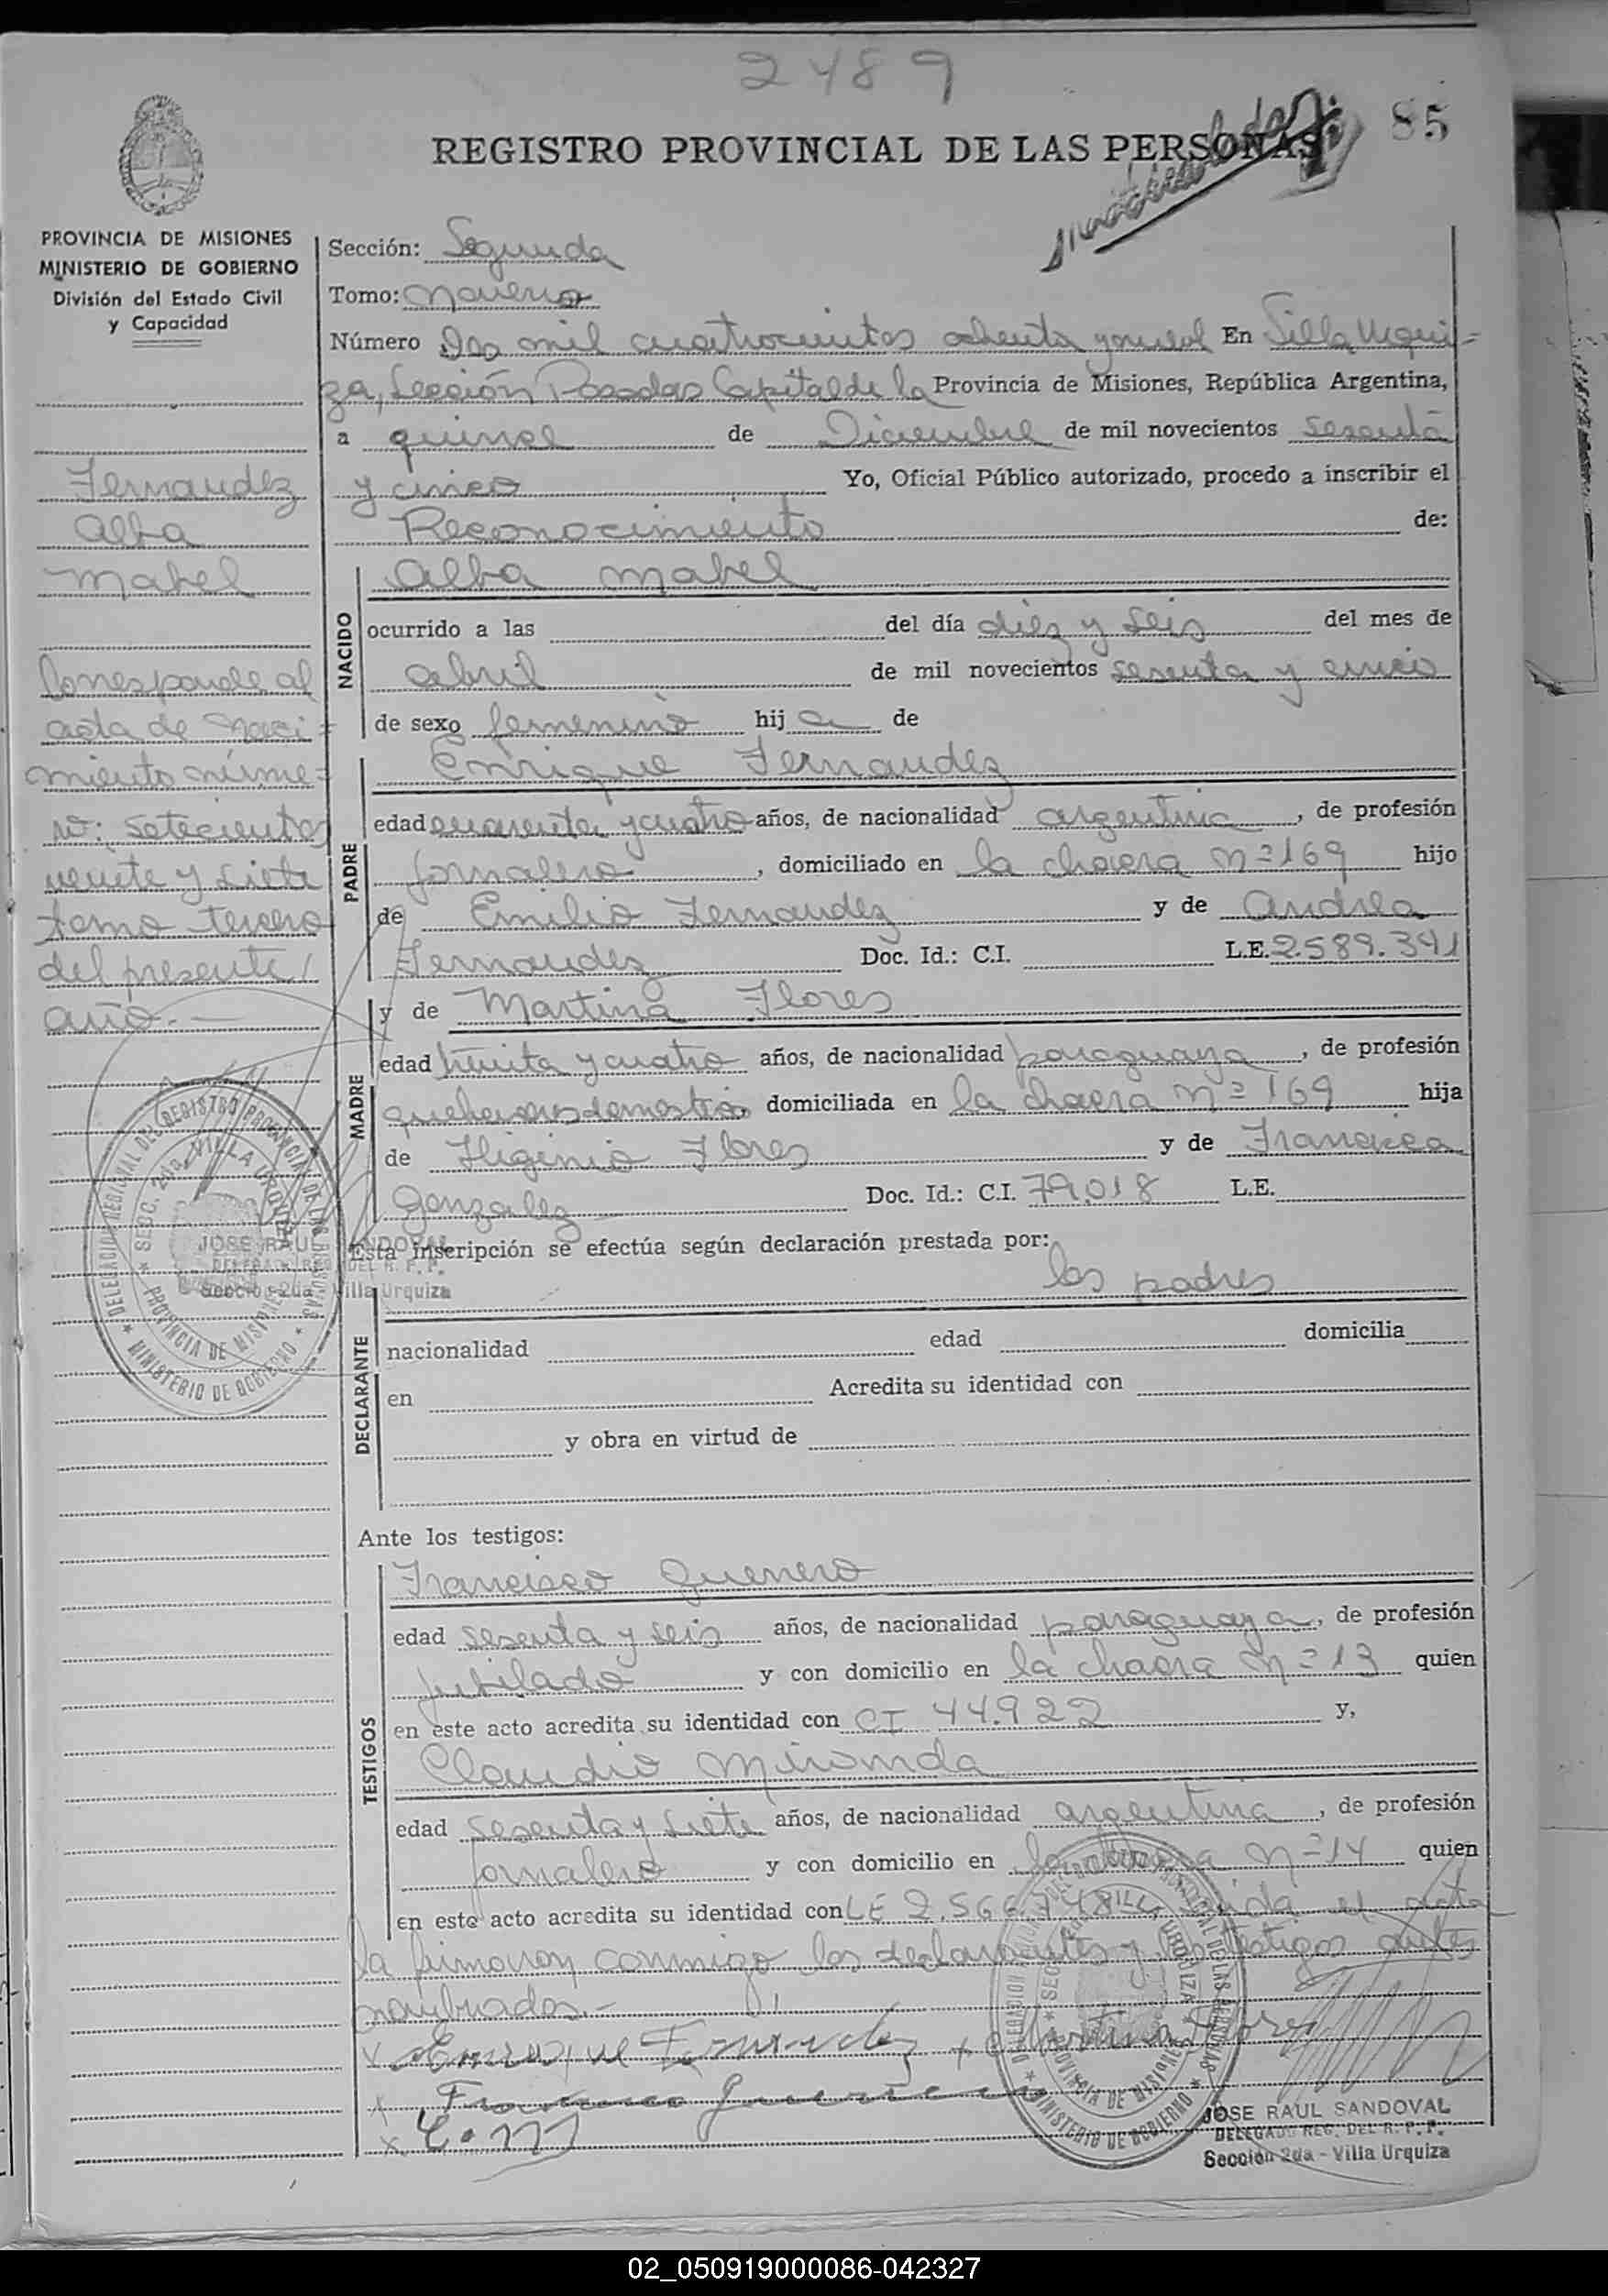 2489
85
REGISTRO PROVINCIAL DE LAS PERSONAS
PROVINCIA DE MISIONES
MINISTERIO DE GOBIERNO
División del Estado Civil
y Capacidad
Fernandez
Alba
Mabel
Corresponde al
acta de naci-
miento núme-
ro: setecientos
veinte y siete
tomo tercero
del presente
año.-
Sección: Segunda
Tomo: Noveno
Número Dos mil cuatrocientos ochenta y nueve En Villa Urqui-
za, Sección Posadas Capital de la Provincia de Misiones, República Argentina,
a quince de Diciembre de mil novecientos sesenta
y cinco Yo, Oficial Público autorizado, procedo a inscribir el
Reconocimiento de:
NACIDO
Alba Mabel
ocurrido a las del día diez y seis del mes de
abril de mil novecientos sesenta y cinco
de sexo femenino hij a de
PADRE
Enrique Fernandez
edad cuarenta y cuatro años, de nacionalidad argentina, de profesión
jornalero, domiciliado en la chacra nº 169 hijo
de Emilio Fernandez y de Andrea
Fernandez Doc. Id.: C.I. L.E. 2.589.341
MADRE
y de Martina Flores
edad treinta y cuatro años, de nacionalidad paraguaya, de profesión
quehaceres domesticos domiciliada en la chacra nº 169 hija
de Higinio Flores y de Francisca
Gonzalez Doc. Id.: C.I. 79.018 L.E.
Esta inscripción se efectúa según declaración prestada por:
los padres
DECLARANTE
nacionalidad edad domicilia
en Acredita su identidad con
y obra en virtud de
Ante los testigos:
TESTIGOS
Francisco Guerrero
edad sesenta y seis años, de nacionalidad paraguaya, de profesión
jubilado y con domicilio en la chacra nº 13 quien
en este acto acredita su identidad con CI 44.922 y,
Claudio Miranda
edad sesenta y siete años, de nacionalidad argentina, de profesión
jornalero y con domicilio en la chacra nº 14 quien
en este acto acredita su identidad con LE 2.566.748 Leida el acta
la firmaron conmigo los declarantes y los testigos antes
nombrados.-
x Enrique Fernandez x Martina Flores
x Francisco Guerrero
x C. M
DELEGACION REGIONAL DEL REGISTRO PROVINCIAL DE LAS PERSONAS
SECC. 2da. VILLA URQUIZA
PROVINCIA DE MISIONES
MINISTERIO DE GOBIERNO
JOSE RAUL SANDOVAL
DELEGADO REG. DEL R. P. P.
Sección 2da - Villa Urquiza
JOSE RAUL SANDOVAL
DELEGADO REG. DEL R. P. P.
Sección 2da - Villa Urquiza
02_050919000086-042327